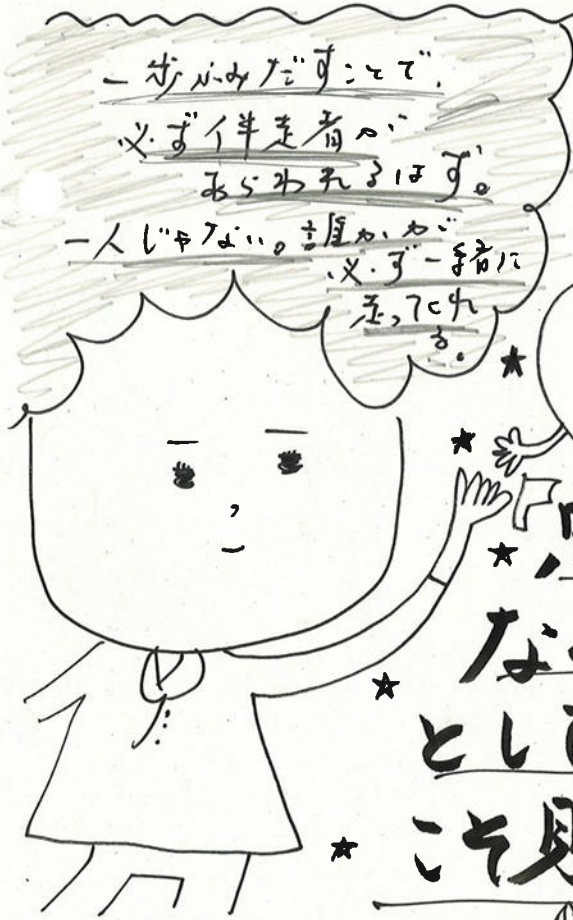 一歩ふみだすことで、
必ず伴走者が
あらわれるはず。
一人じゃない。誰かが
必ず一緒に
走ってくれ
る。
「
な
とし
こそ見